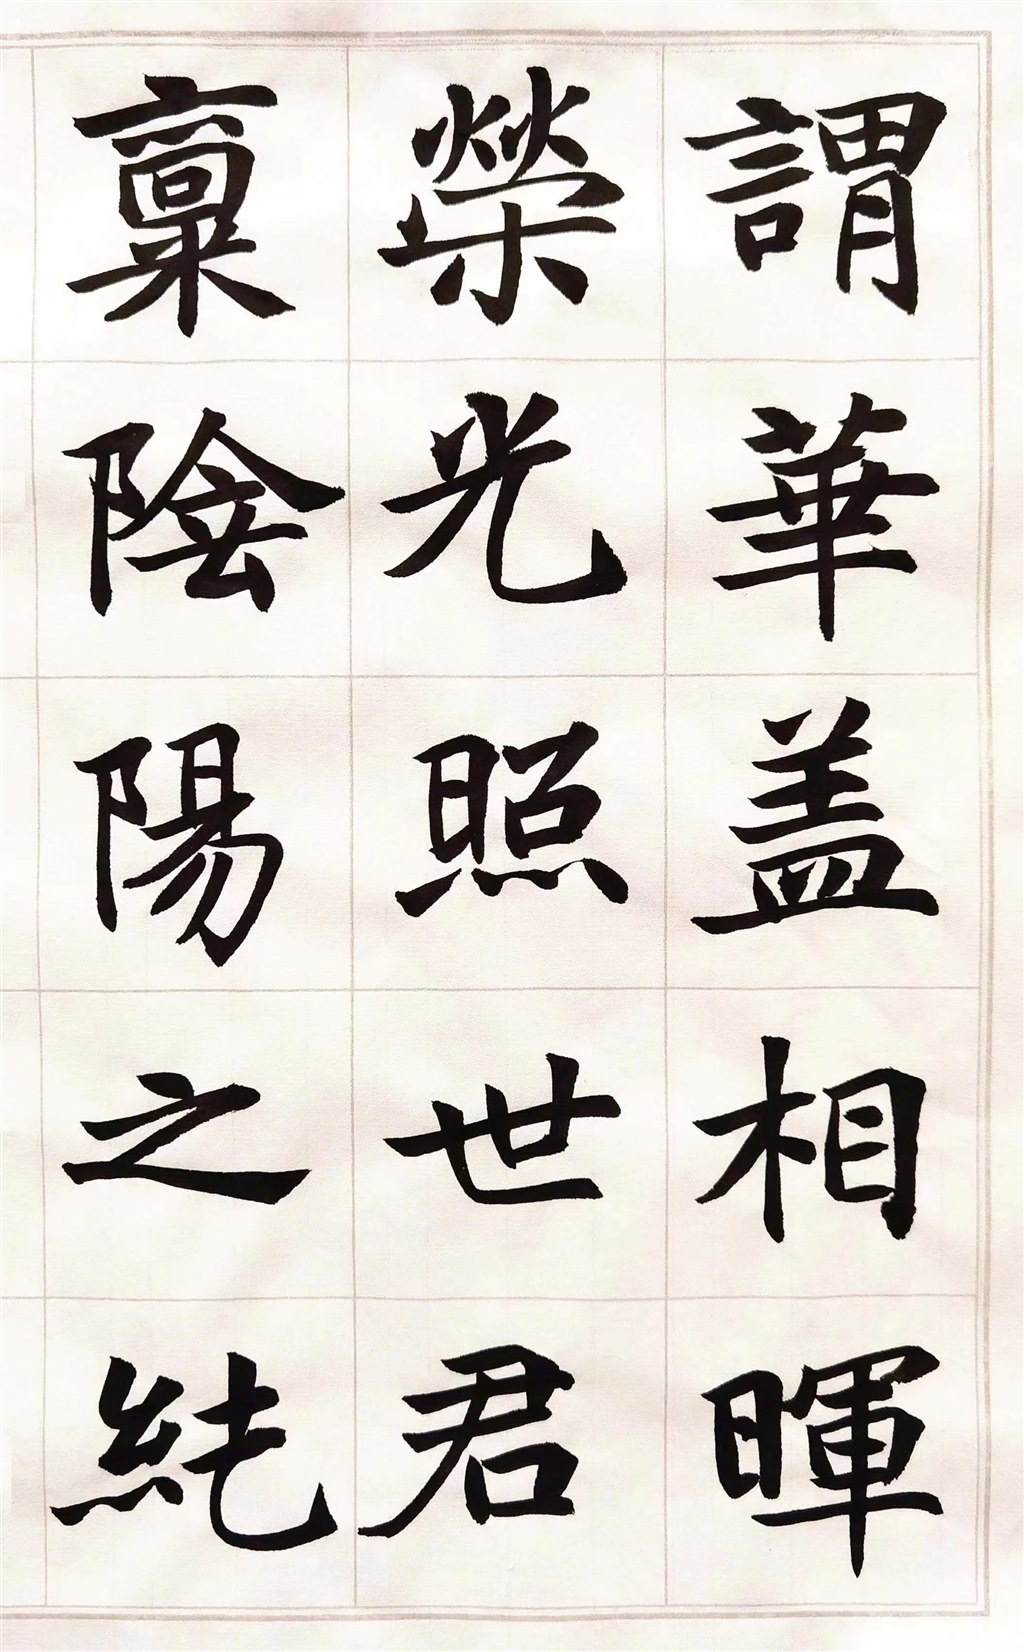 謂華盖相暉
榮光照世君
稟陰陽之純